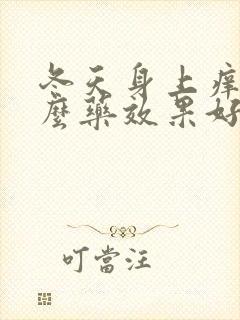 冬天身上痒
麼藥效果好
叮當汪